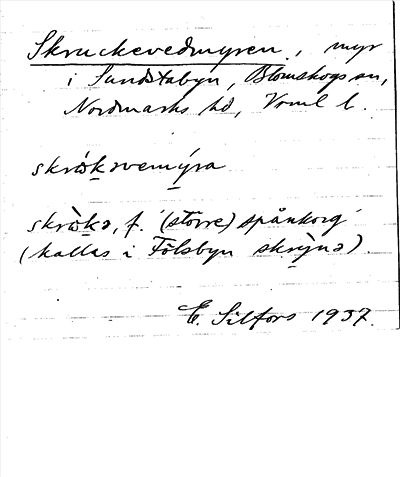 Skruckevedmyren, myr
i Sundstabyn, Blomskogs sn,
Nordmarks hd, Vrml l.
skrωkvemýra
skrὼkə, f. '(större) spånkorg'
(kallas i Fölsbyn skrỳnə)
E. Silfors 1937.